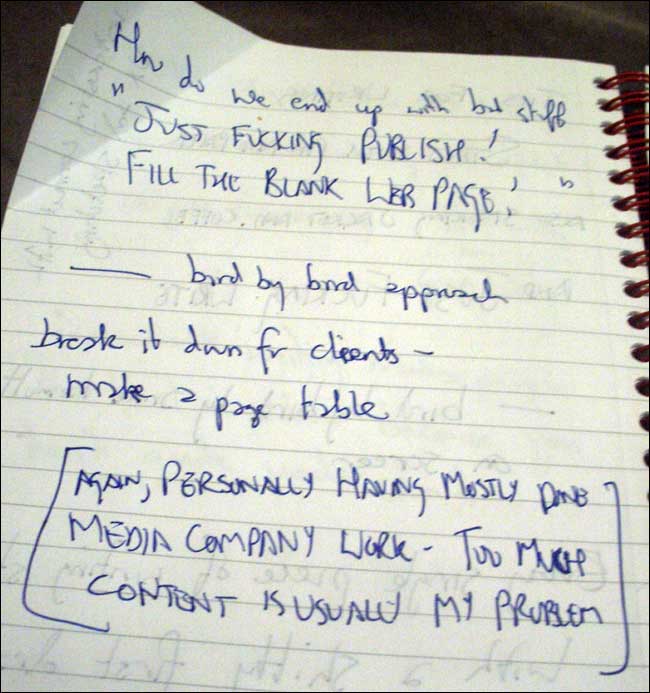 How do we end up with bad stuff
"JUST FUCKING PUBLISH!
FILL THE BLANK WEB PAGE!"
— bird by bird approach
break it down for clients –
make a page table
[AGAIN, PERSONALLY HAVING MOSTLY DONE
MEDIA COMPANY WORK – TOO MUCH
CONTENT IS USUALLY MY PROBLEM]